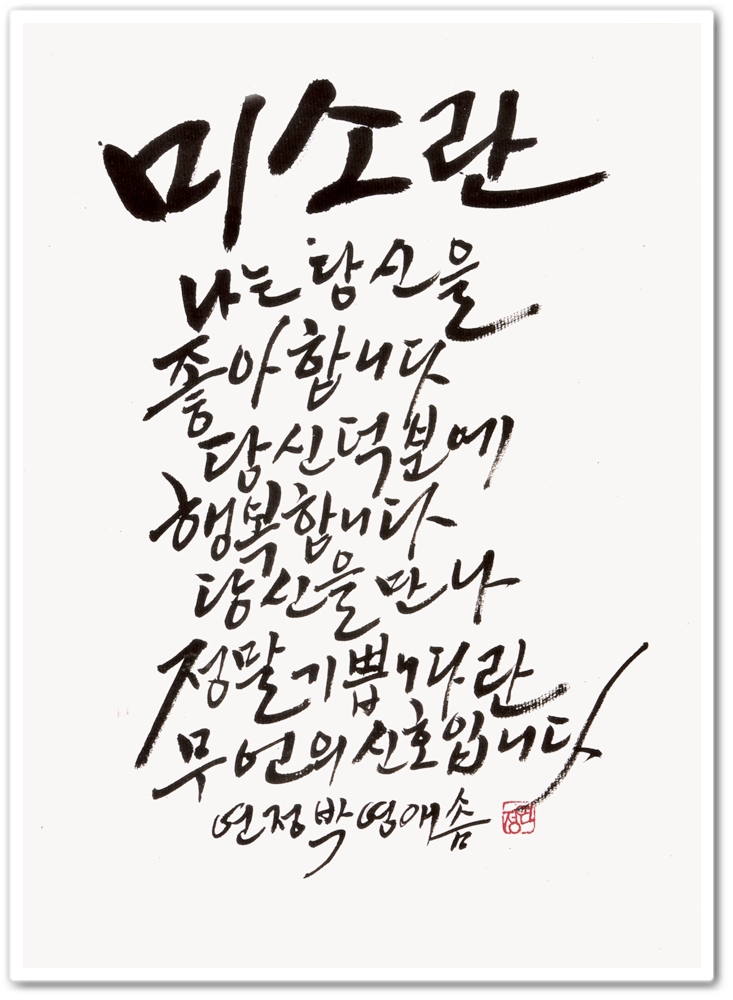 미소란
나는 당신을
좋아합니다
당신덕분에
행복합니다
당신을 만나
정말 기쁩니다란
무언의 신호입니다
연정 박영애 솜
연정